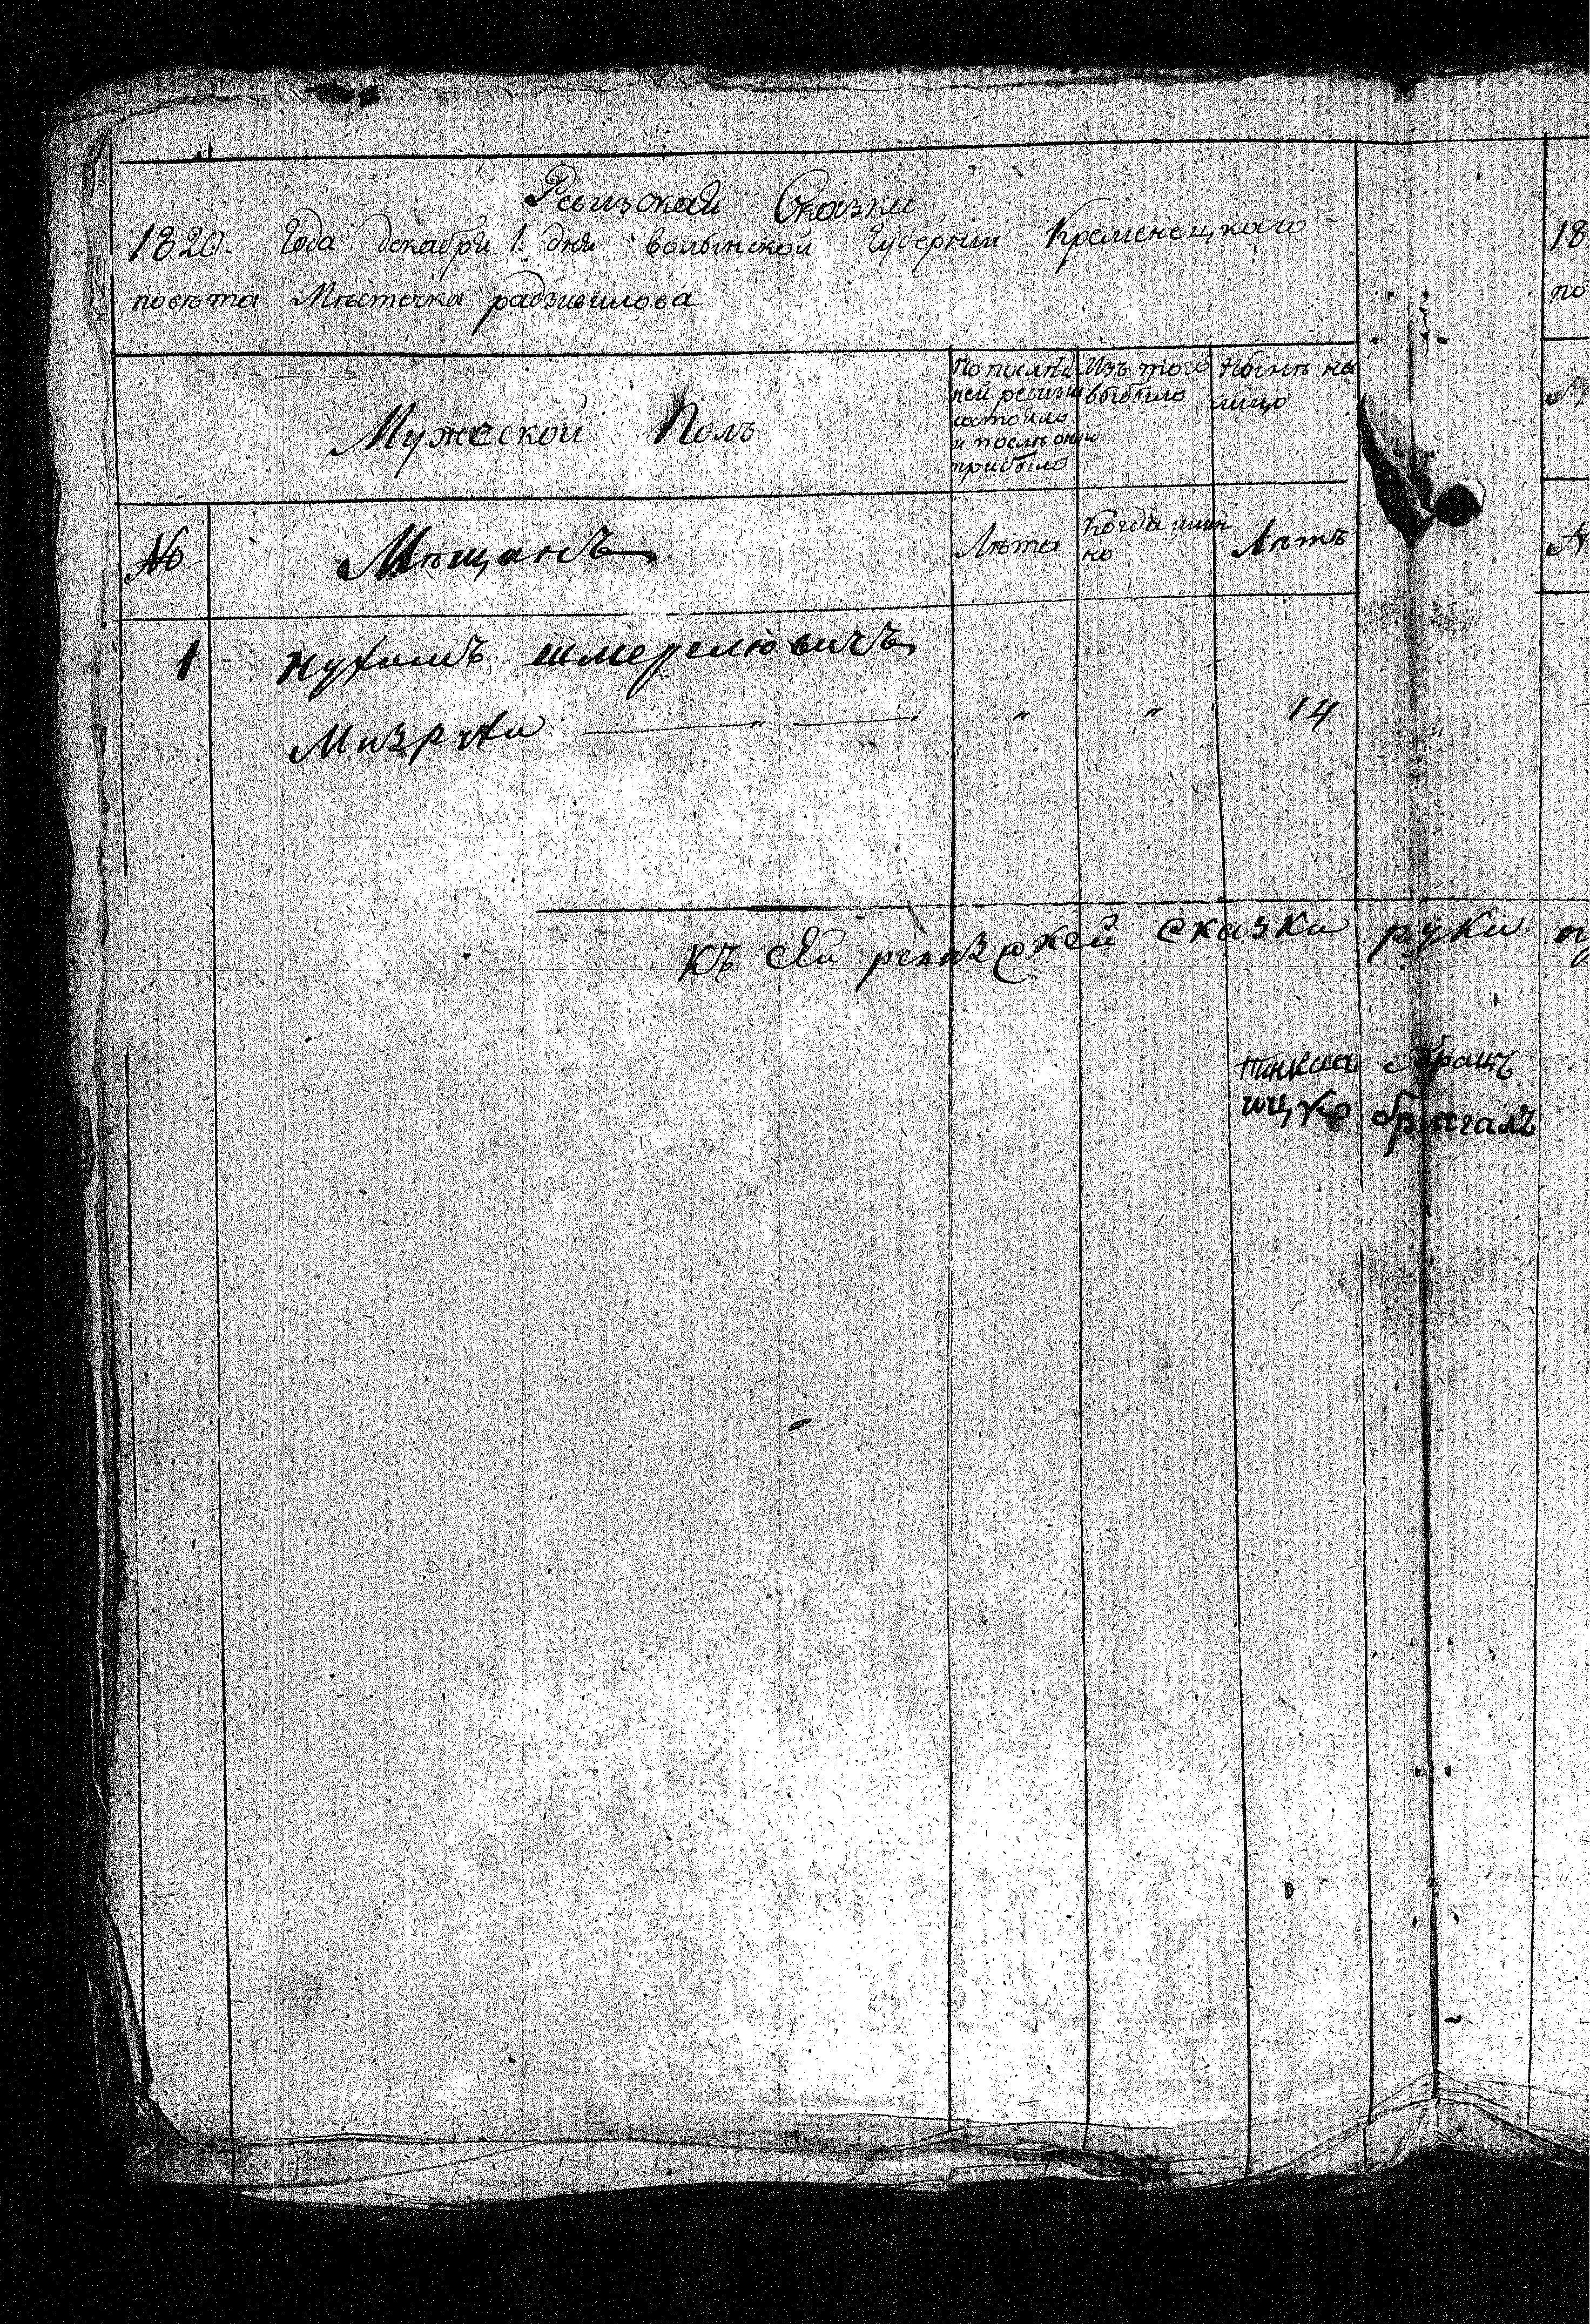 Ревизская Сказка
1820. Года декабря 1. дня волынской Губернии Кременецкаго
повѣта Мѣстечка радзивилова
Мужеской Полъ
По послѣд
ней ревизіи
состояло
и послѣ оной
прибыло
Изъ того
выбыло
Нынѣ на
лицо
№
Мѣщанъ
Лѣта
Когда имян
но
Лѣтъ
1 нухимъ шмерлювичъ
Мизрухи — " — " " 14
къ сей ревизской сказки руки
ицко
18
по